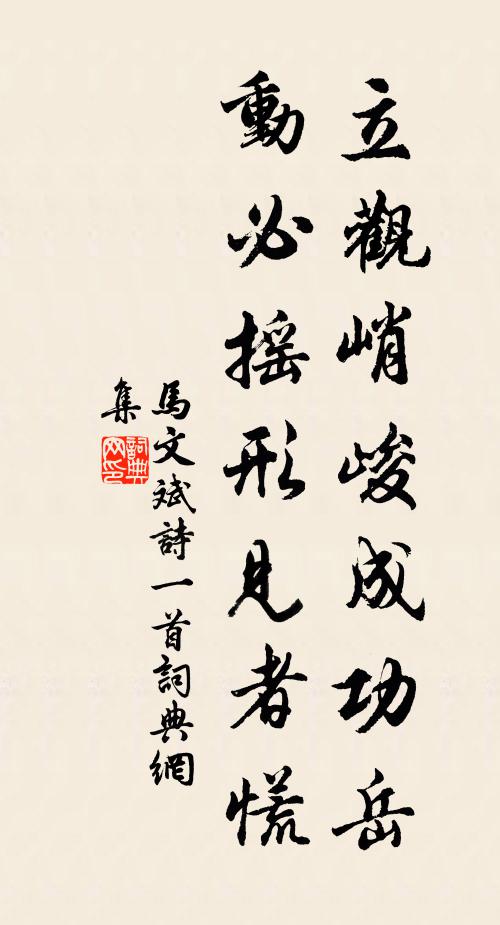 立觀峭峻成功岳
動必摇形見者慌
馬文斌詩一首詞典網
集
詞典
网印